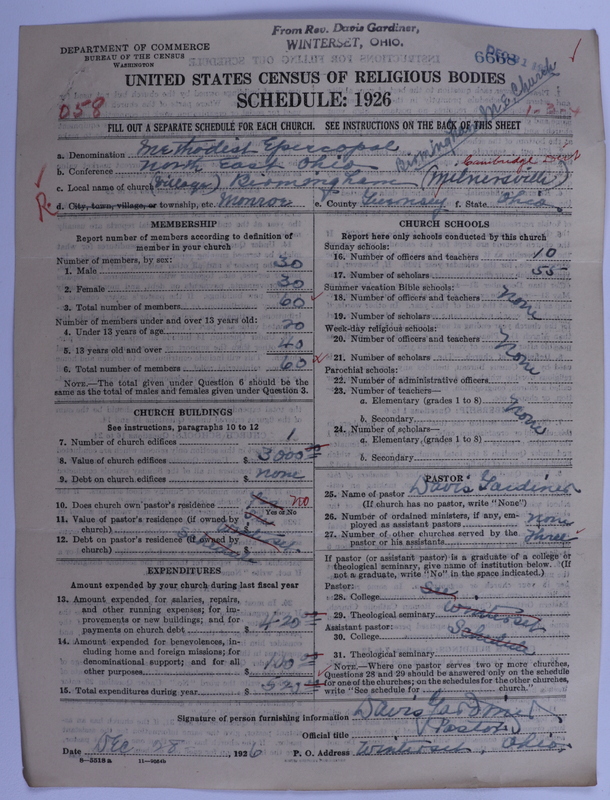 From Rev. Davis Gardiner,
WINTERSET, OHIO.
DEPARTMENT OF COMMERCE
BUREAU OF THE CENSUS
WASHINGTON
6668
UNITED STATES CENSUS OF RELIGIOUS BODIES
SCHEDULE: 1926
058
Birmingham M.E. Church
FILL OUT A SEPARATE SCHEDULE FOR EACH CHURCH. SEE INSTRUCTIONS ON THE BACK OF THIS SHEET
a. Denomination Methodist Episcopal
b. Conference North East Ohio Cambridge Dist
c. Local name of church (Village) Birmingham (Milnersville)
d. City, town, village, or township, etc. Monroe e. County Guernsey f. State Ohio
R.
MEMBERSHIP
Report number of members according to definition of
member in your church
Number of members, by sex:
1. Male 30
2. Female 30
3. Total number of members 60
Number of members under and over 13 years old:
4. Under 13 years of age 20
5. 13 years old and over 40
6. Total number of members 60
NOTE.—The total given under Question 6 should be the
same as the total of males and females given under Question 3.
CHURCH BUILDINGS
See instructions, paragraphs 10 to 12
7. Number of church edifices 1
8. Value of church edifices $ 3000
9. Debt on church edifices $ none
10. Does church own pastor's residence no
Yes or No
11. Value of pastor's residence (if owned by
church) $
12. Debt on pastor's residence (if owned by
church) $
EXPENDITURES
Amount expended by your church during last fiscal year
13. Amount expended for salaries, repairs,
and other running expenses; for im-
provements or new buildings; and for
payments on church debt $ 420
14. Amount expended for benevolences, in-
cluding home and foreign missions; for
denominational support; and for all
other purposes $ 100
15. Total expenditures during year $ 520
CHURCH SCHOOLS
Report here only schools conducted by this church
Sunday schools:
16. Number of officers and teachers 10
17. Number of scholars 55
Summer vacation Bible schools:
18. Number of officers and teachers none
19. Number of scholars
Week-day religious schools:
20. Number of officers and teachers
21. Number of scholars none
Parochial schools:
22. Number of administrative officers
23. Number of teachers—
a. Elementary (grades 1 to 8)
b. Secondary none
24. Number of scholars—
a. Elementary (grades 1 to 8)
b. Secondary
PASTOR
25. Name of pastor Davis Gardiner
(If church has no pastor, write "None")
26. Number of ordained ministers, if any, em-
ployed as assistant pastors none
27. Number of other churches served by the
pastor or his assistants three
If pastor (or assistant pastor) is a graduate of a college or
theological seminary, give name of institution below. (If
not a graduate, write "No" in the space indicated.)
Pastor:
28. College See
29. Theological seminary Winterset
Assistant pastor:
30. College Schedule
31. Theological seminary
NOTE.—Where one pastor serves two or more churches,
Questions 28 and 29 should be answered only on the schedule
for one of the churches; on the schedules for the other churches,
write "See schedule for church."
Signature of person furnishing information Davis Gardiner
Official title Pastor
Date Dec 28, 1926 P. O. Address Winterset, Ohio
8—5518a 11—9564b